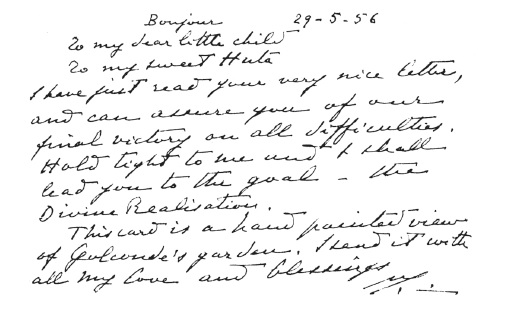 Bonjour 29-5-56
To my dear little child
To my sweet Huta
I have just read your very nice letter,
and can assure you of our
final victory on all difficulties.
Hold tight to me and I shall
lead you to the goal – the
Divine Realisation.
This card is a hand painted view
of Golconde's garden. I send it with
all my love and blessings